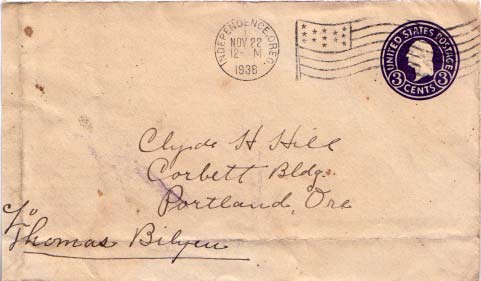 INDEPENDENCE, OREG.
NOV 22
12- M
1938
UNITED STATES POSTAGE
3 CENTS 3
Clyde H Hill
Corbett Bldg.
Portland, Ore
c/o
Thomas Bilyeu